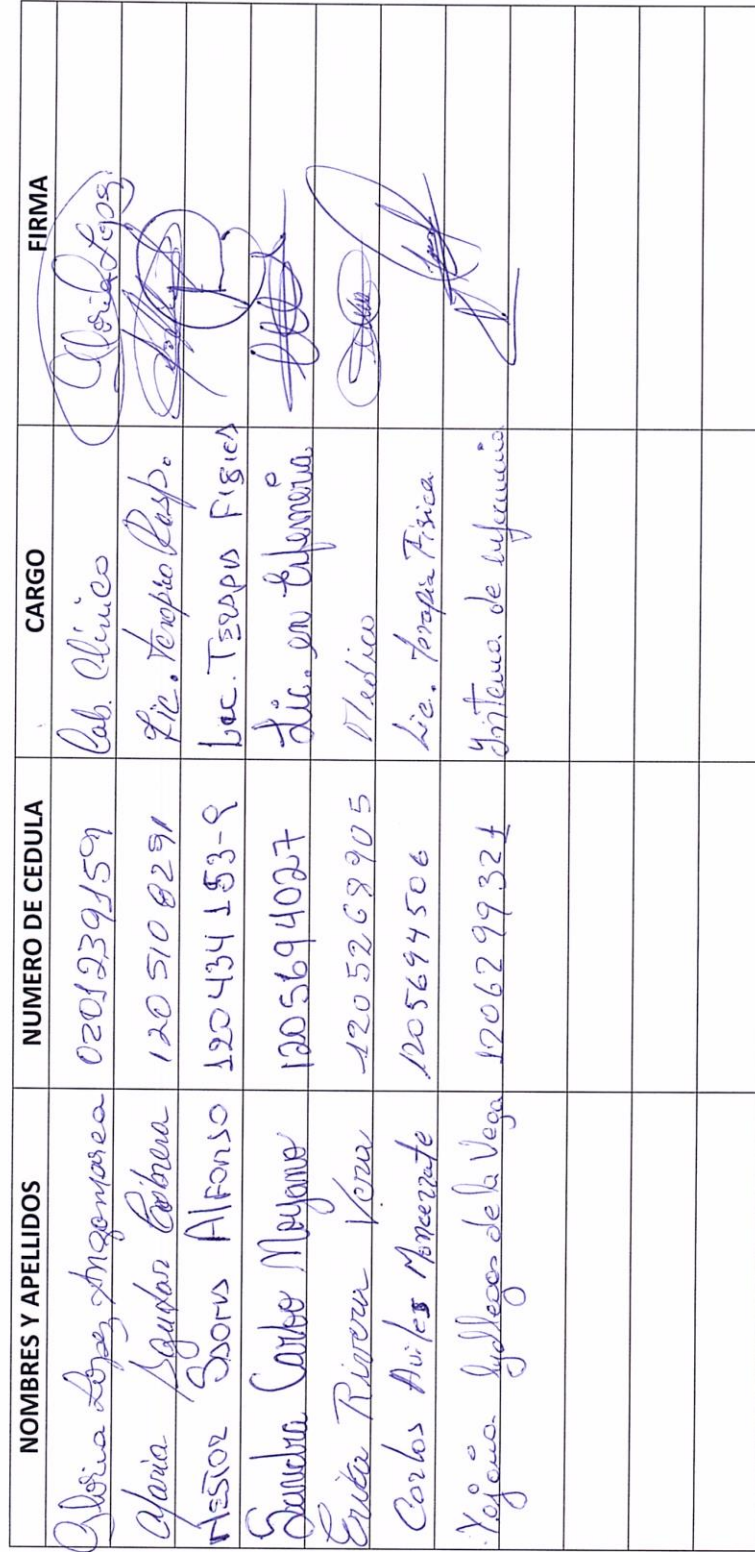 NOMBRES Y APELLIDOS NUMERO DE CEDULA CARGO FIRMA
Gloria López Angamarca 0201239159 Lab. Clínico Gloria López
Maria Aguilar Cabrera 1205108291 Lic. Terapia Resp.
Nestor Alfonso 120434153-9 Lic. Terapia Fisica
Sandra Carbo Moyano 1205694027 Lic. en Enfermeria
Erika Rivera Vera 1205268905 Medico
Carlos Aviles Moncerrate 1205694506 Lic. Terapia Física
Yojaira Gallegos de la Vega 1206299321 de enfermeria